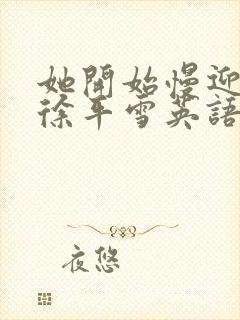 她開始慢迎
徐平雪英語
夜悠